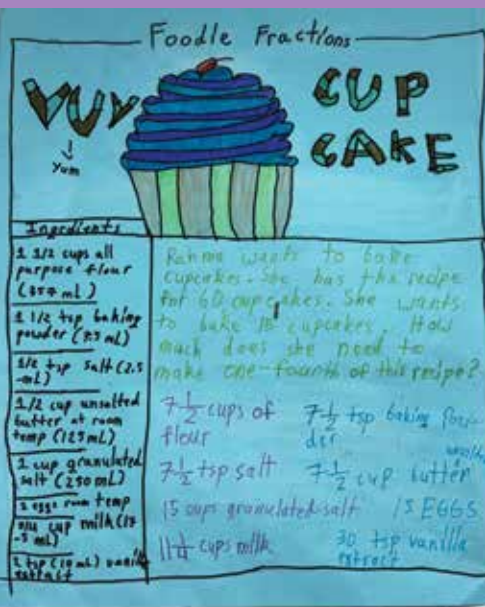 Foodle Fractions
YUY
Yum
CUP
CAKE
Ingredients
1 1/2 cups all
purpose flour
1 1/2 tsp baking
powder (7.5 ml)
1/2 tsp salt (2.5
-ml)
1/2 cup unsalted
butter at room
temp (125mL)
1 cup granulated
salt (250 ml)
eggs room temp
cup milk
2 tsp (10 mL) vanilla
extract
Rahma wants to bake
cupcakes. She has the recipe
for 60 cupcakes. She wants
to bake 15 cupcakes. How
much does she need to
make one-fourth of this recipe?
7 1/2 cups of
flour
7 1/2 tsp baking pow-
der
7 1/2 tsp salt
7 1/2 cup butter
15 cups granulated salt
15 EGGS
cups milk
30 tsp vanilla
extract